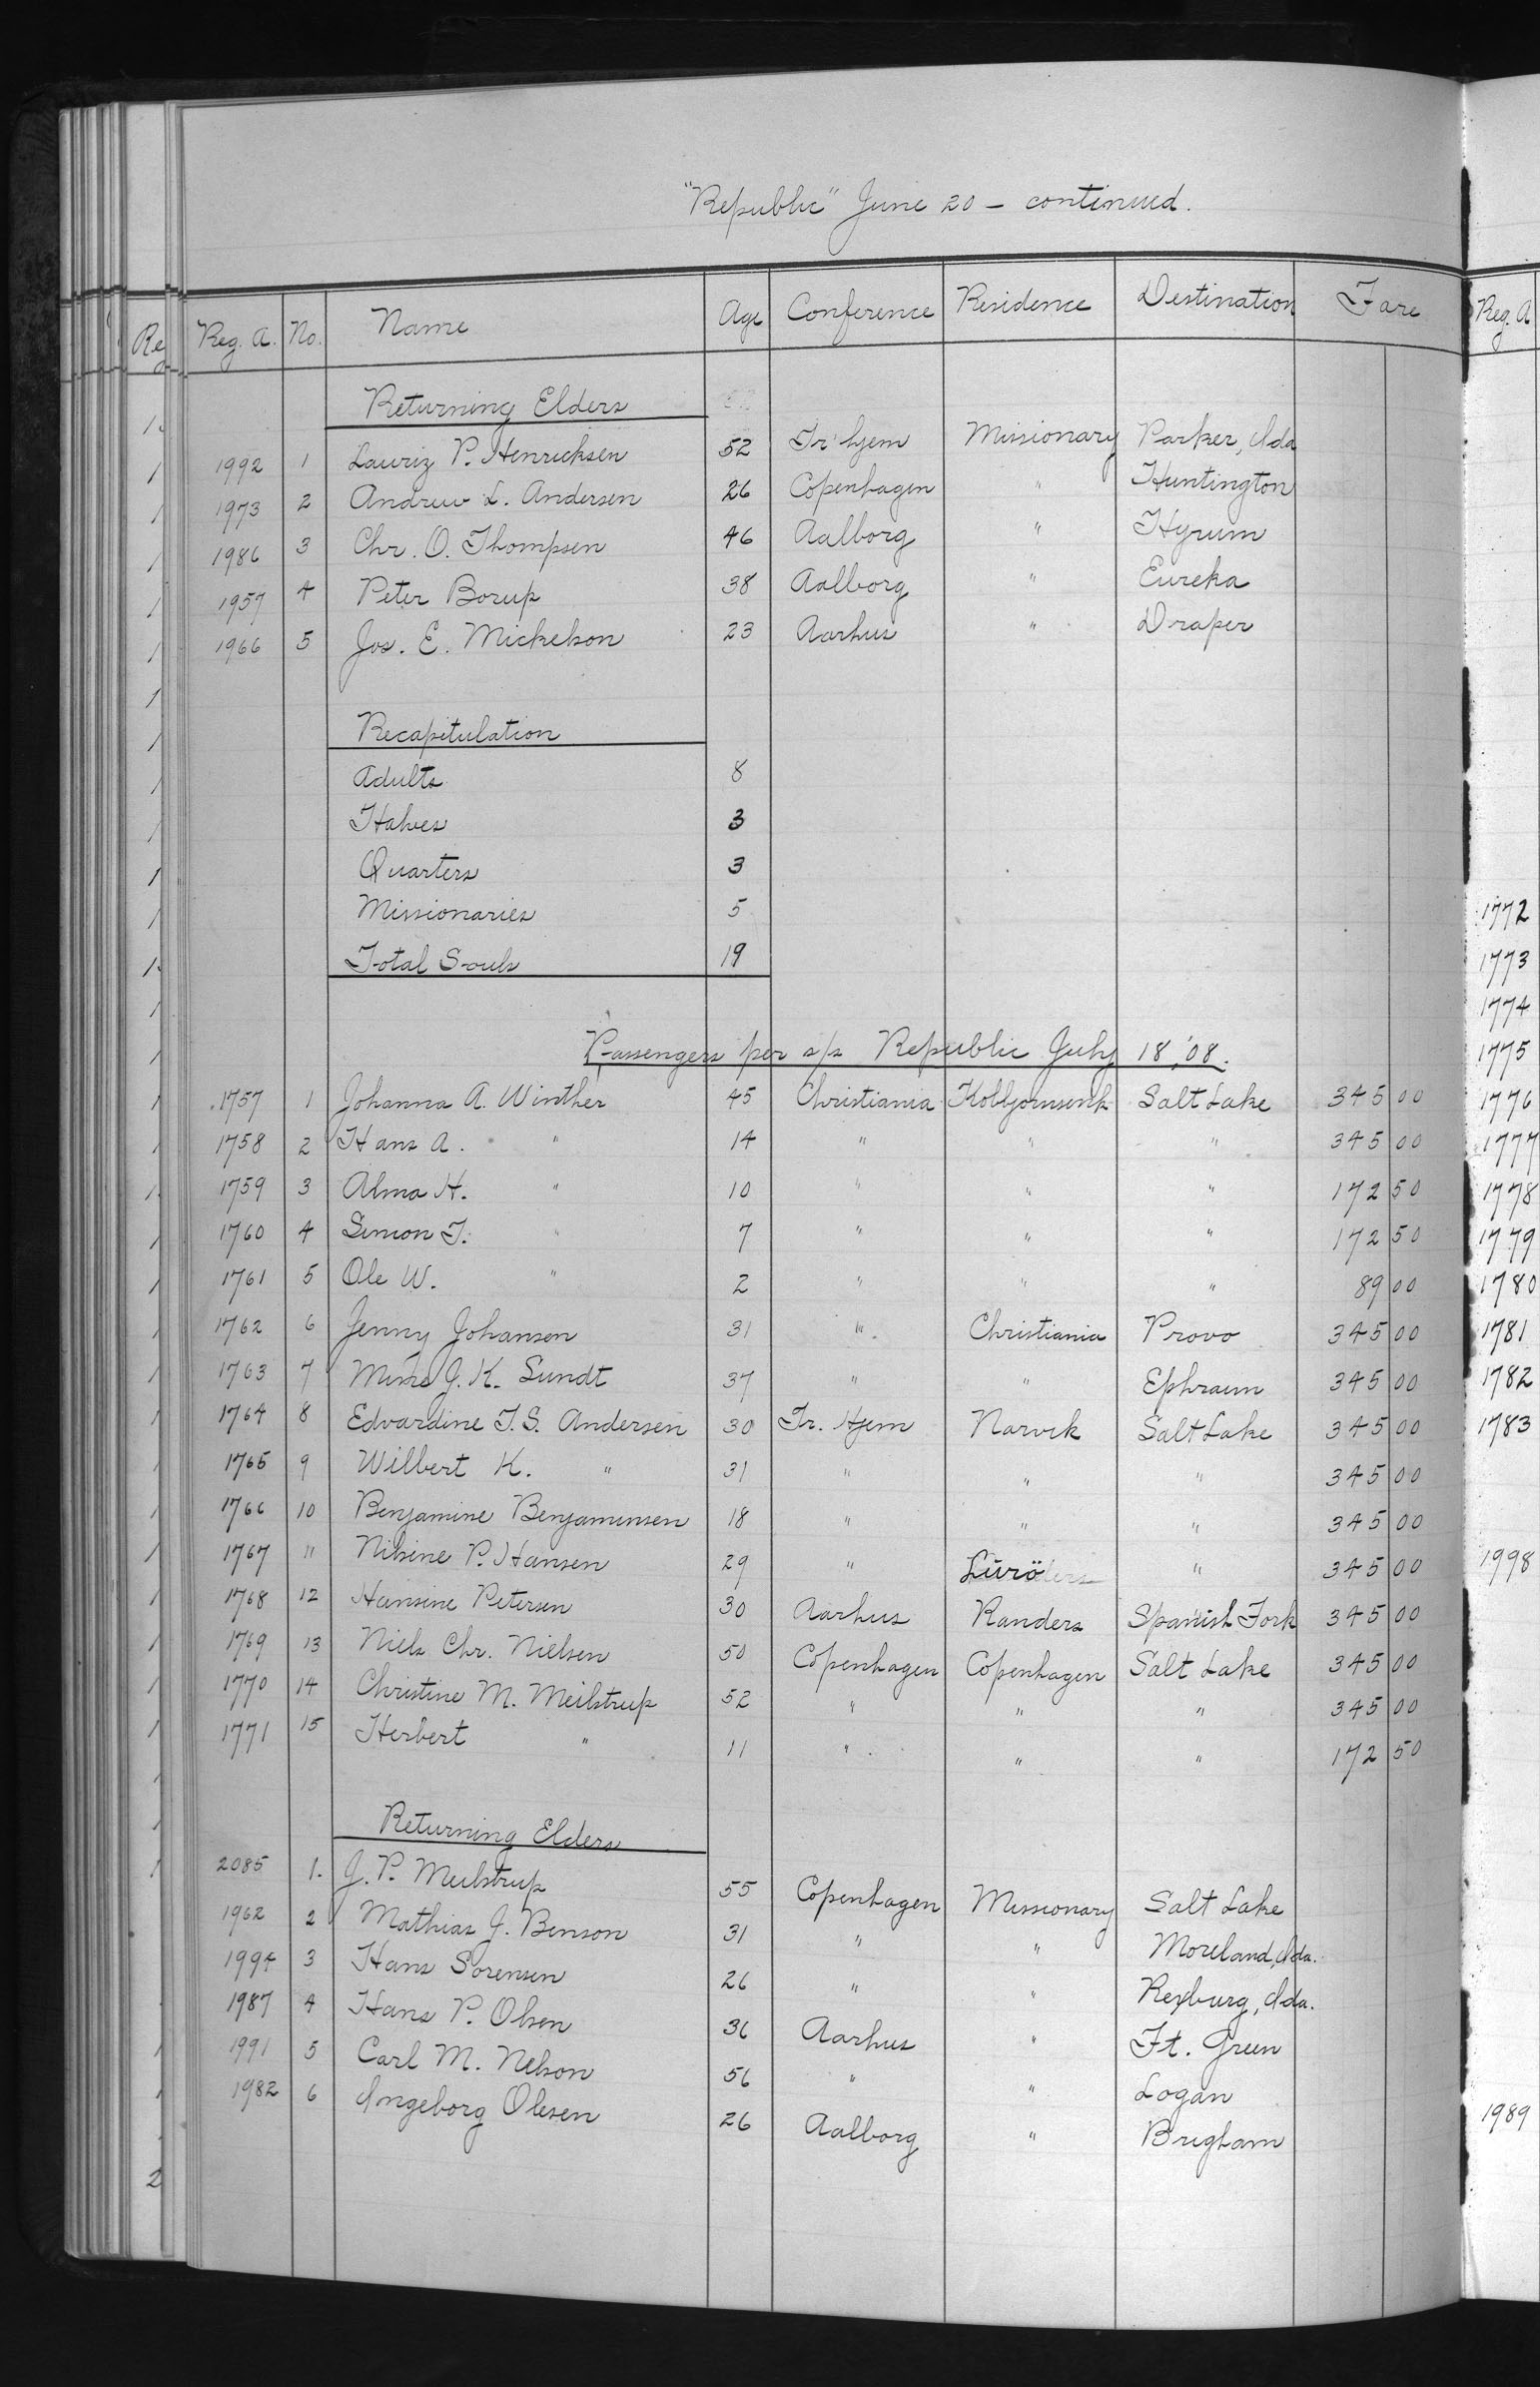 "Republic" June 20 – continued.
Reg. A. No. Name Age Conference Residence Destination Fare
Returning Elders
1992 1 Lauriz P. Henricksen 52 Tr'hjem Missionary Parker, Ida
1973 2 Andrew L. Andersen 26 Copenhagen " Huntington
1986 3 Chr. O. Thompsen 46 Aalborg " Hyrum
1957 4 Peter Borup 38 Aalborg " Eureka
1966 5 Jos. E. Mickelson 23 Aarhus " Draper
Recapitulation
Adults 8
Halves 3
Quarters 3
Missionaries 5
Total Souls 19
Passengers per s/s Republic July 18, '08.
1757 1 Johanna A. Winther 45 Christiania Salt Lake 345 00
1758 2 Hans A. " 14 " " " 345 00
1759 3 Alma H. " 10 " " " 172 50
1760 4 Simon T. " 7 " " " 172 50
1761 5 Ole W. " 2 " " " 89 00
1762 6 Jenny Johansen 31 " Christiania Provo 345 00
1763 7 J. K. Sundt 37 " " Ephraim 345 00
1764 8 Edvardine T. S. Andersen 30 Tr. Hjem Narvik Salt Lake 345 00
1765 9 Wilbert K. " 31 " " " 345 00
1766 10 Benjamine Benjaminsen 18 " " " 345 00
1767 11 Nilsine P. Hansen 29 " Livrö " 345 00
1768 12 Hansine Petersen 30 Aarhus Randers Spanish Fork 345 00
1769 13 Niels Chr. Nielsen 50 Copenhagen Copenhagen Salt Lake 345 00
1770 14 Christine M. Meilstrup 52 " " " 345 00
1771 15 Herbert " 11 " " " 172 50
Returning Elders
2085 1. J. P. Meilstrup 55 Copenhagen Missionary Salt Lake
1962 2 Mathias J. Benson 31 " " Moreland, Ida.
1994 3 Hans Sorensen 26 " " Rexburg, Ida.
1987 4 Hans P. Olsen 36 Aarhus " Ft. Green
1991 5 Carl M. Nelson 56 " " Logan
1982 6 Ingeborg Olesen 26 Aalborg " Brigham
Reg. A
1772
1773
1774
1775
1776
1777
1778
1779
1780
1781
1782
1783
1998
1989